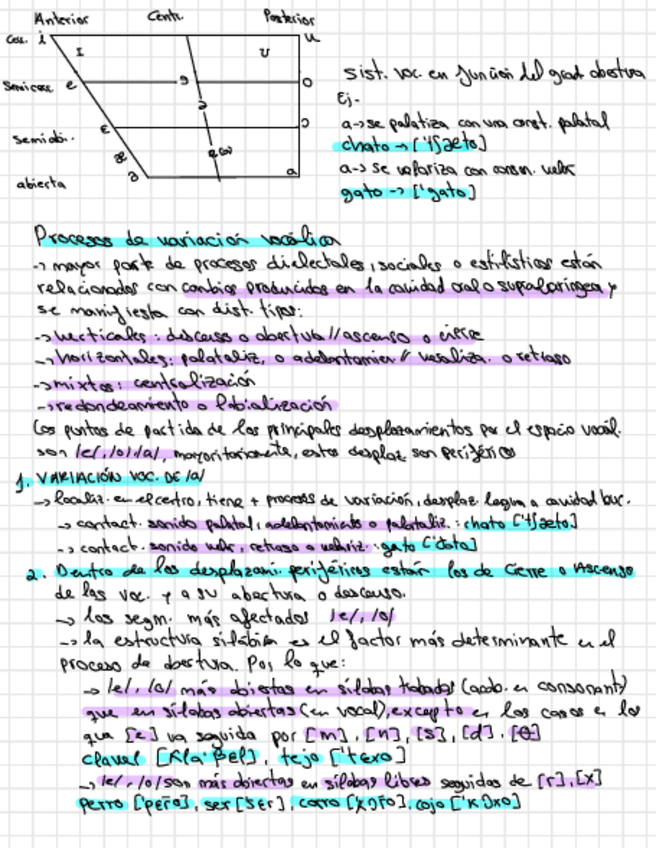 Anterior Centr. Posterior
Cerr. i u
I U
Semicerr. e ə o
ɛ ɔ
semiabi.
æ ɐ
abierta a ɑ
sist. voc. en función del grad abertura
Ej.
a-> se palatiza con una const. palatal
chato -> ['tʃæto]
a-> se velariza con conson. velar
gato -> ['gɑto]
Procesos de variación vocálica
-> mayor parte de procesos dialectales, sociales o estilísticos están
relacionados con cambios producidos en la cavidad oral o supralaríngea y
se manifiesta con dist. tipos:
-> verticales: descenso o abertura // ascenso o cierre
-> horizontales: palataliz. o adelantamien // velaliza. o retraso
-> mixtos: centralización
-> redondeamiento o labialización
Los puntos de partida de los principales desplazamientos por el espacio vocál.
son /e/, /o/ /a/, mayoritariamente, estos desplaz. son periféric
1. VARIACIÓN VOC. DE /a/
-> localiz. en el centro, tiene + procesos de variación, desplaz. lengua a cavidad buc.
-> contact. sonido palatal, adelantamiento o palataliz.: chato ['tʃæto]
-> contact. sonido velar, retraso o velariz: gato
2. Dentro de los desplazami. periféricos están los de Cierre o Ascenso
de las voc. y a su abertura o descenso.
-> los segm. más afectados /e/, /o/
-> la estructura silábica es el factor más determinante en el
proceso de abertura. Por lo que:
-> /e/, /o/ más abiertas en sílabas trabadas (acab. en consonante)
que en sílabas abiertas (en vocal), excepto en los casos en los
que [e] va seguida por [m], [n], [s], [d], [θ]
clavel [kla'βel], tejo ['texo]
-> /e/, /o/ son más abiertas en sílabas libres seguidas de [r], [x]
perro ['pero], ser ['ser], corro ['kɔro], cojo ['kɔxo]